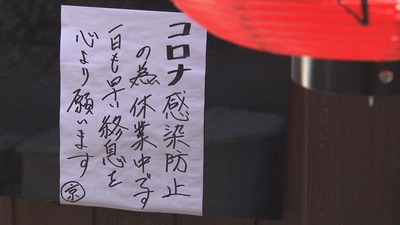 コロナ感染防止
の為休業中です
一日も早い終息を
心より願います
京